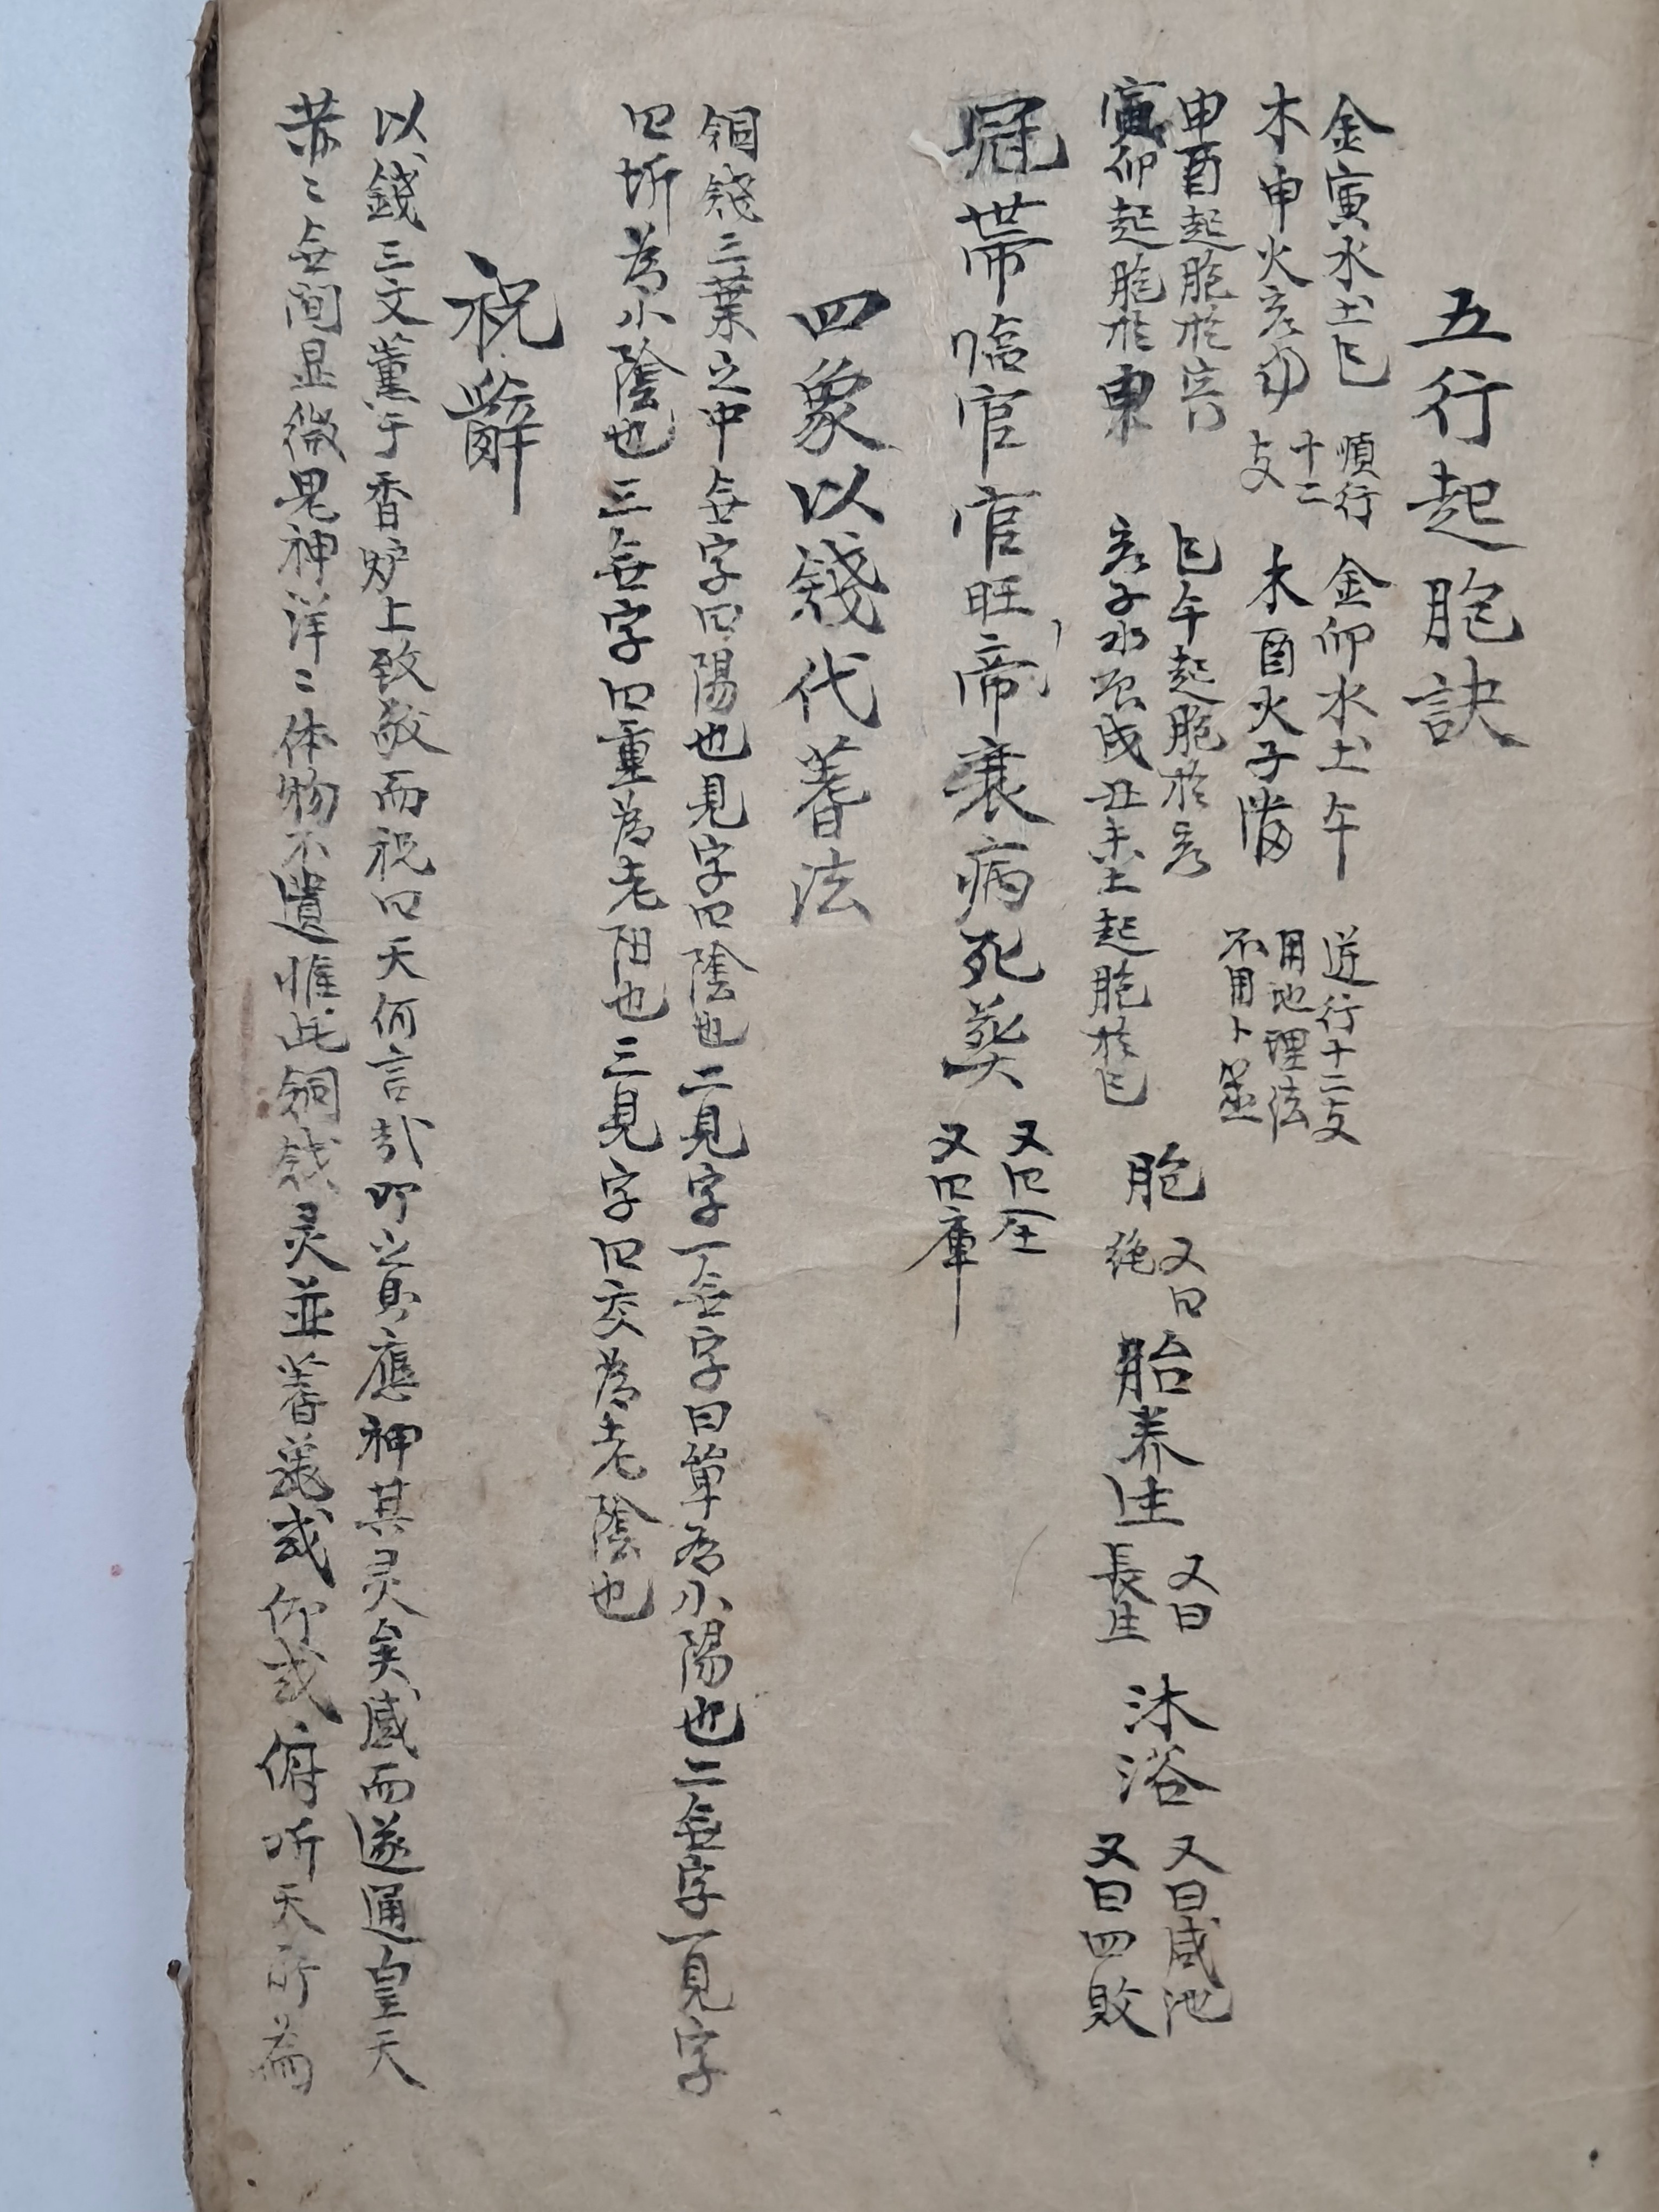 五行起胞訣
金寅水土巳 順行 金卯水土午 逆行十二支
十二 用地理法
木申火亥 支 木酉火子 不用卜筮
申酉起胞於寅 巳午起胞於亥 又曰 又曰 又曰咸池
胞 胎養生 沐浴
寅卯起胞於申 亥子水辰戌丑未土起胞於巳 絶 長生 又曰四敗
冠帶臨官官旺帝衰病死葬 又曰
又曰庫
四象以錢代蓍法
銅錢三葉之中無字曰陽也見字曰陰也二見字一無字曰單為小陽也二無字一見字
曰坼為小陰也三無字曰重為老阳也三見字曰交為老陰也
祝辭
以錢三文薰于香炉上致敬而祝曰天何言哉叩之則應神其灵矣感而遂通皇天
恭〻無間显微鬼神洋〻体物不遺惟此銅錢灵並蓍或仰或俯听天所為